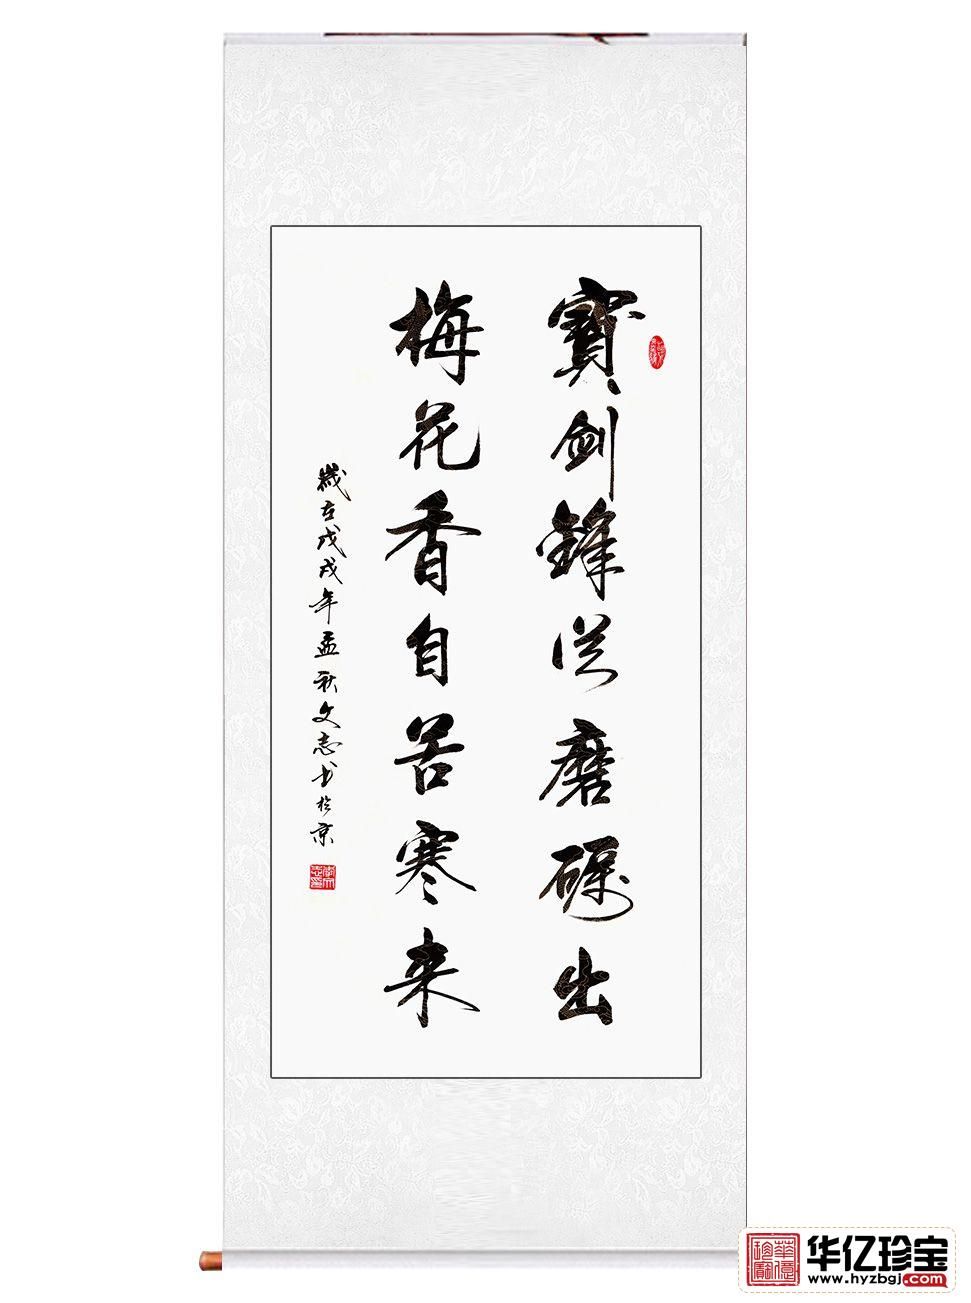 寶劍鋒從磨礪出
梅花香自苦寒来
歲在戊戌年孟秋文志书於京
华亿珍宝
www.hyzbgj.com